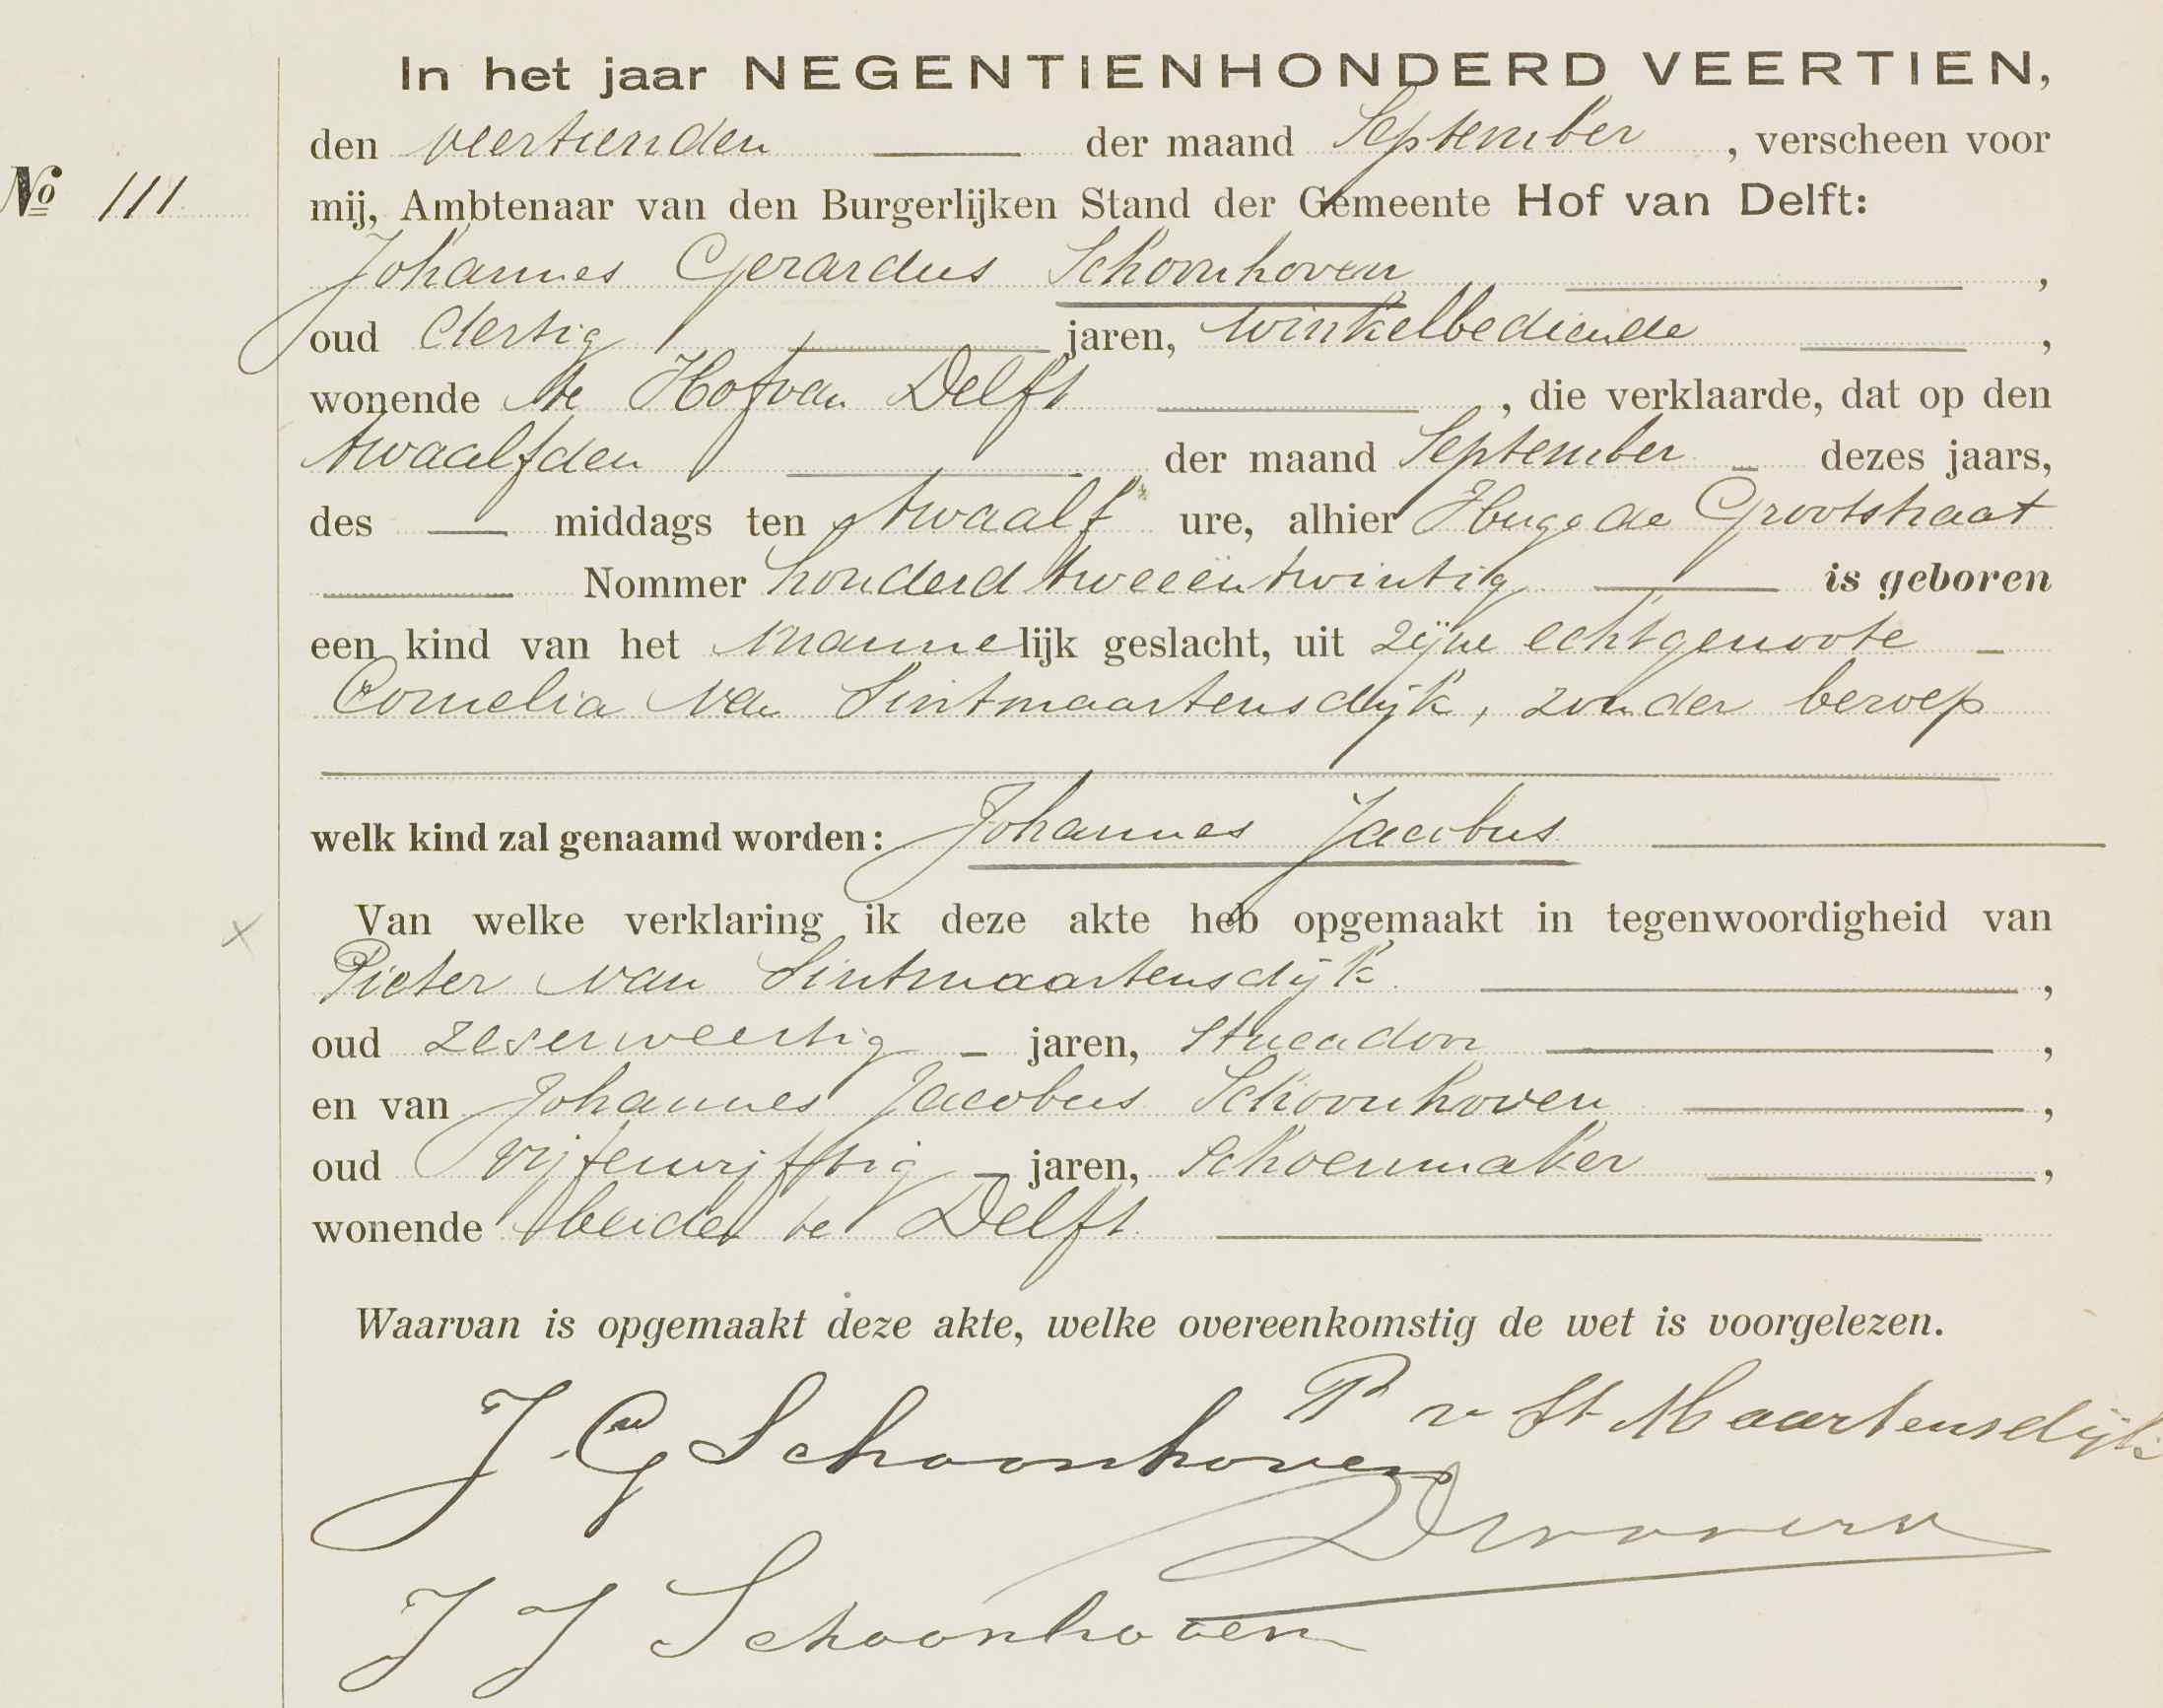 In het jaar NEGENTIENHONDERD VEERTIEN,
den veertienden der maand September, verscheen voor
No 111 mij, Ambtenaar van den Burgerlijken Stand der Gemeente Hof van Delft:
Johannes Gerardus Schoonhoven,
oud dertig jaren, winkelbediende,
wonende te Hof van Delft, die verklaarde, dat op den
twaalfden der maand September dezes jaars,
des — middags ten twaalf ure, alhier Hugo de Grootstraat
Nommer honderd tweeëntwintig is geboren
een kind van het mannelijk geslacht, uit zijne echtgenoote
Cornelia van Sintmaartensdijk, zonder beroep
welk kind zal genaamd worden: Johannes Jacobus
Van welke verklaring ik deze akte heb opgemaakt in tegenwoordigheid van
Pieter van Sintmaartensdijk,
oud zesenveertig jaren, stucadoor,
en van Johannes Jacobus Schoonhoven,
oud vijfenvijftig jaren, schoenmaker,
wonende beiden te Delft
Waarvan is opgemaakt deze akte, welke overeenkomstig de wet is voorgelezen.
J. G Schoonhoven P v St Maartensdijk
J J Schoonhoven